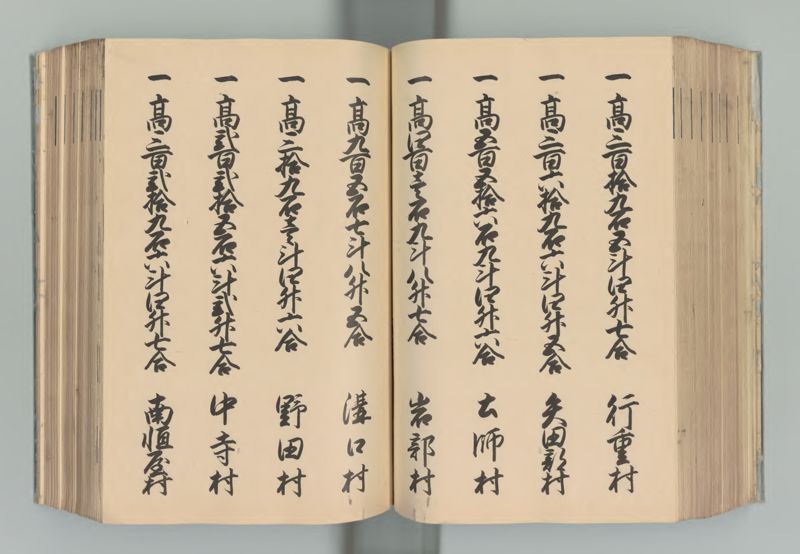 一 高三百拾九石五斗四升七合 行重村
一 高三百六拾九石六斗四升五合 矢田部村
一 高五百五拾六石九斗四升六合 土師村
一 高四百壱石九斗八升七合 岩部村
一 高九百五石七斗八升五合 溝口村
一 高三拾九石壱斗四升六合 野田村
一 高弐百弐拾五石六斗弐升七合 中寺村
一 高三百弐拾九石六斗四升七合 南恒屋村